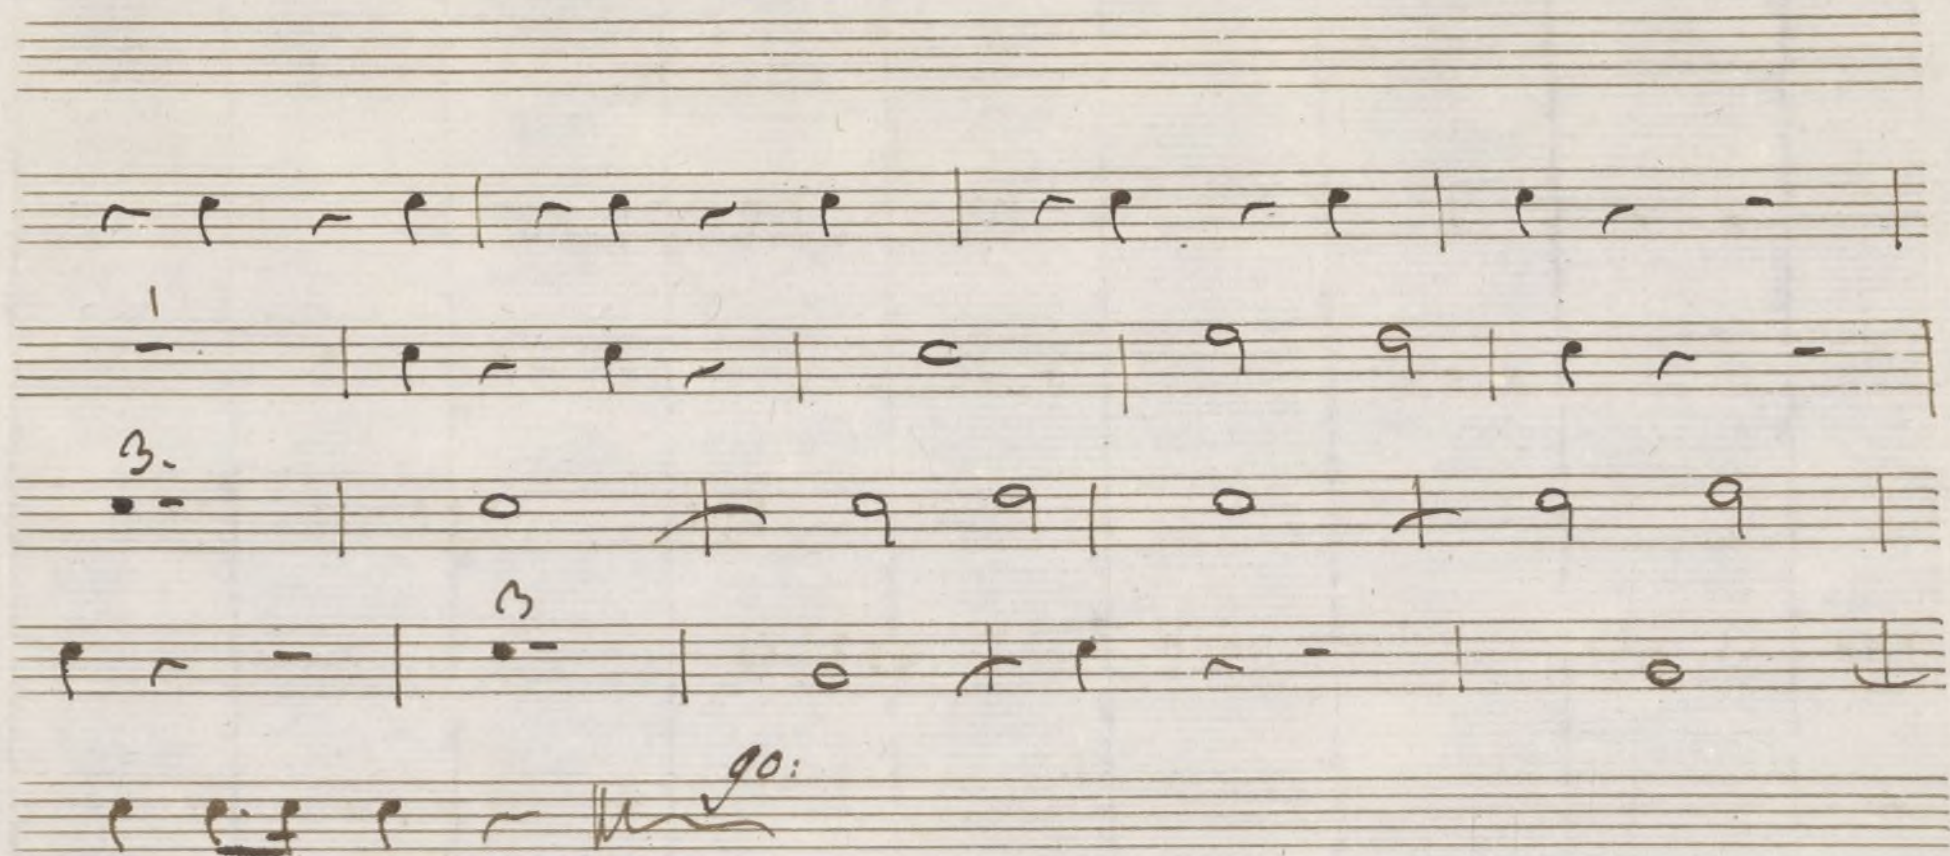 1
3.
3
90: